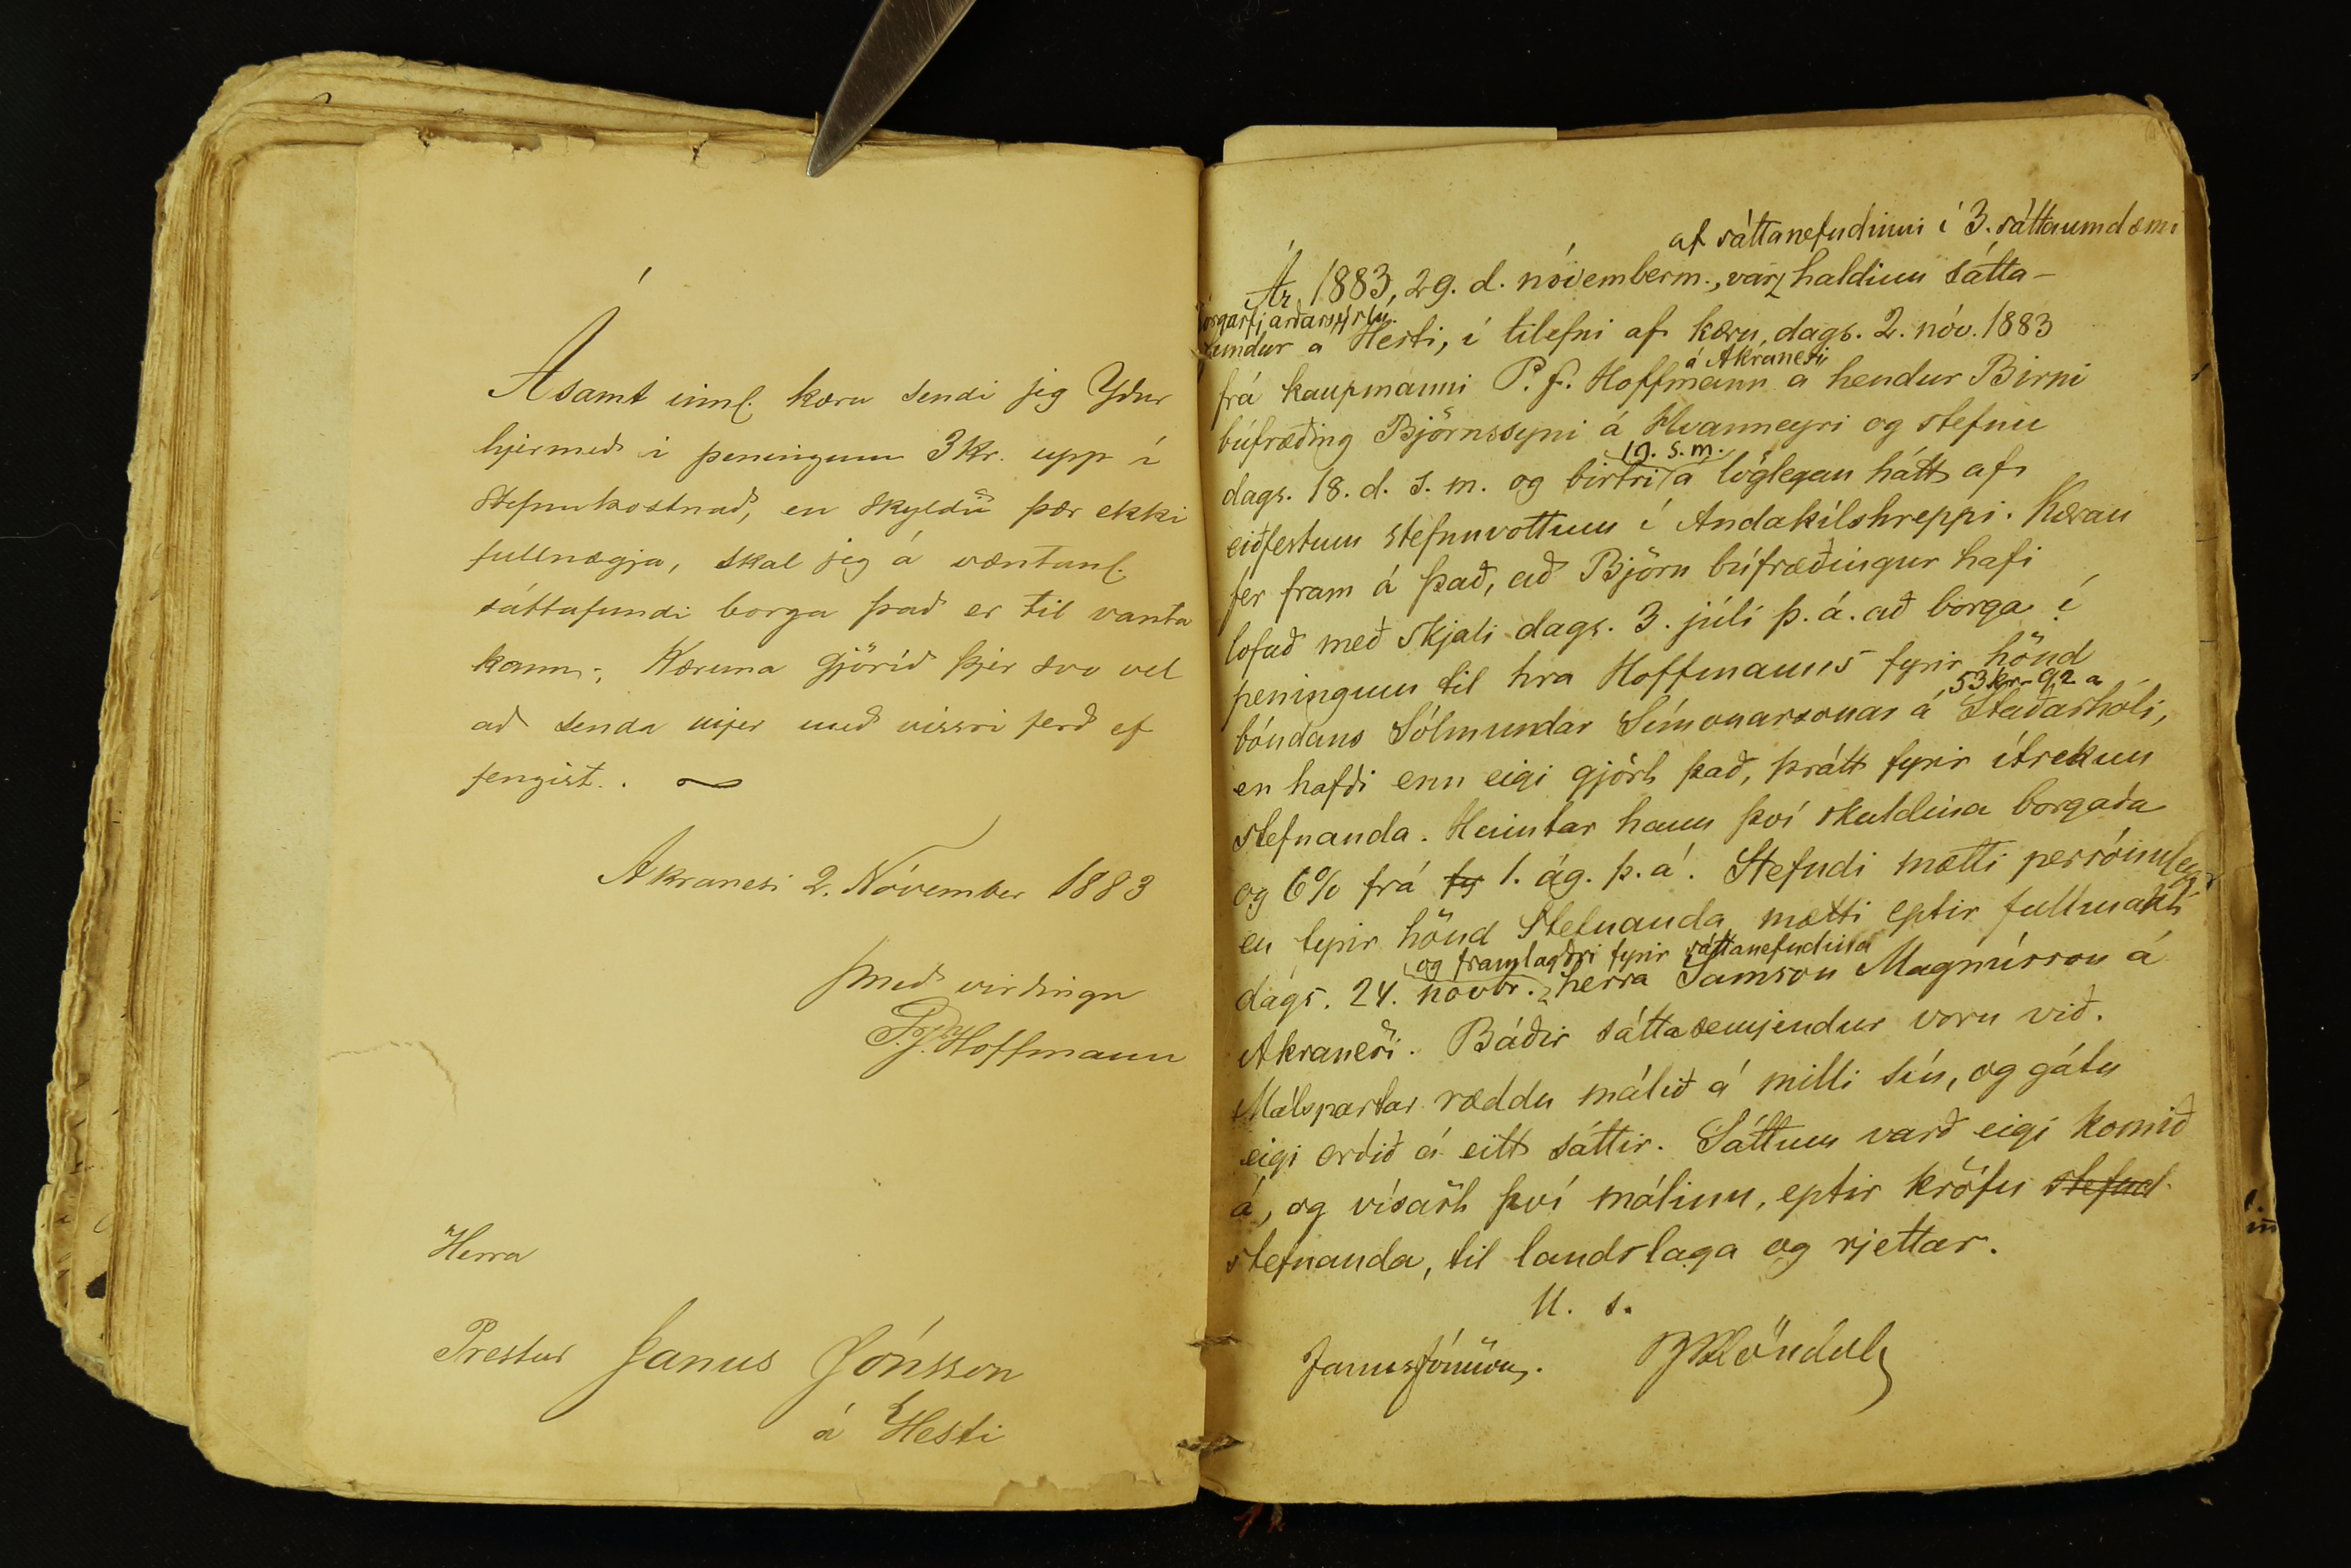 Ásamt innl. kæru sendi jeg Yður
hjermeð í peningum 3 Kr. upp í
Stefnukostnað, en skyldu þær ekki
fullnægja, skal jeg á væntanl.
sáttafundi borga það er til vanta
kann; Kæruna gjörið þjer svo vel
að senda mjer með vissri ferð ef
fengist.
Akranesi 2. Nóvember 1883
með virðingu
P. F. Hoffmann
Herra
Prestur Janus Jónsson
á Hesti
af sáttanefndinni í 3. sáttaumdæmi
Ár 1883, 29. d. nóvemberm., var haldinn sátta-
orgarfjarðarsýslu
fundur á Hesti, í tilefni af kæru, dags. 2. nóv. 1883
á Akranesi
frá kaupmanni P. F. Hoffmann á hendur Birni
búfræðing Björnssyni á Hvanneyri og stefnu
19. s. m.
dags. 18. d. s. m. og birtri á löglegan hátt af
eiðfestum stefnuvottum í Andakílshreppi. Kæran
fer fram á það, að Björn búfræðingur hafi
lofað með skjali dags. 3. júlí þ. á. að borga í
peningum til hra Hoffmanns fyrir hönd
53 kr. 92 a
bóndans Sólmundar Símonarsonar á Staðarhóli,
en hafði enn eigi gjört það, þrátt fyrir ítrekun
stefnanda. Heimtar hann því skuldina borgaða
og 6% frá fy 1. ág. þ. á. Stefndi mætti persónulega
en fyrir hönd Stefnanda mætti eptir fullmakt
og framlagðri fyrir sáttanefndina
dags. 24. novbr. herra Samson Magnússon á
Akranesi. Báðir sáttasemjendur voru við.
Málspartar ræddu málið á milli sín, og gátu
eigi orðið á eitt sáttir. Sáttum varð eigi komið
á, og vísast því málinu, eptir kröfu stefnd
stefnanda, til landslaga og rjettar.
U. s.
Janus Jónsson. Blöndal